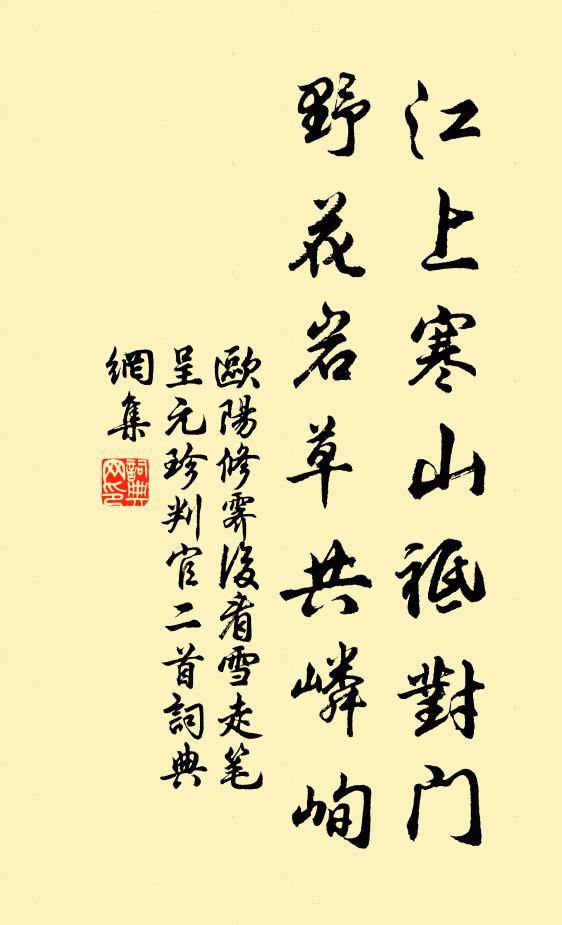 江上寒山祗對門
野花岩草共嶙峋
歐陽修霽後看雪走笔
呈元珍判官二首詞典
網集
詞典网印